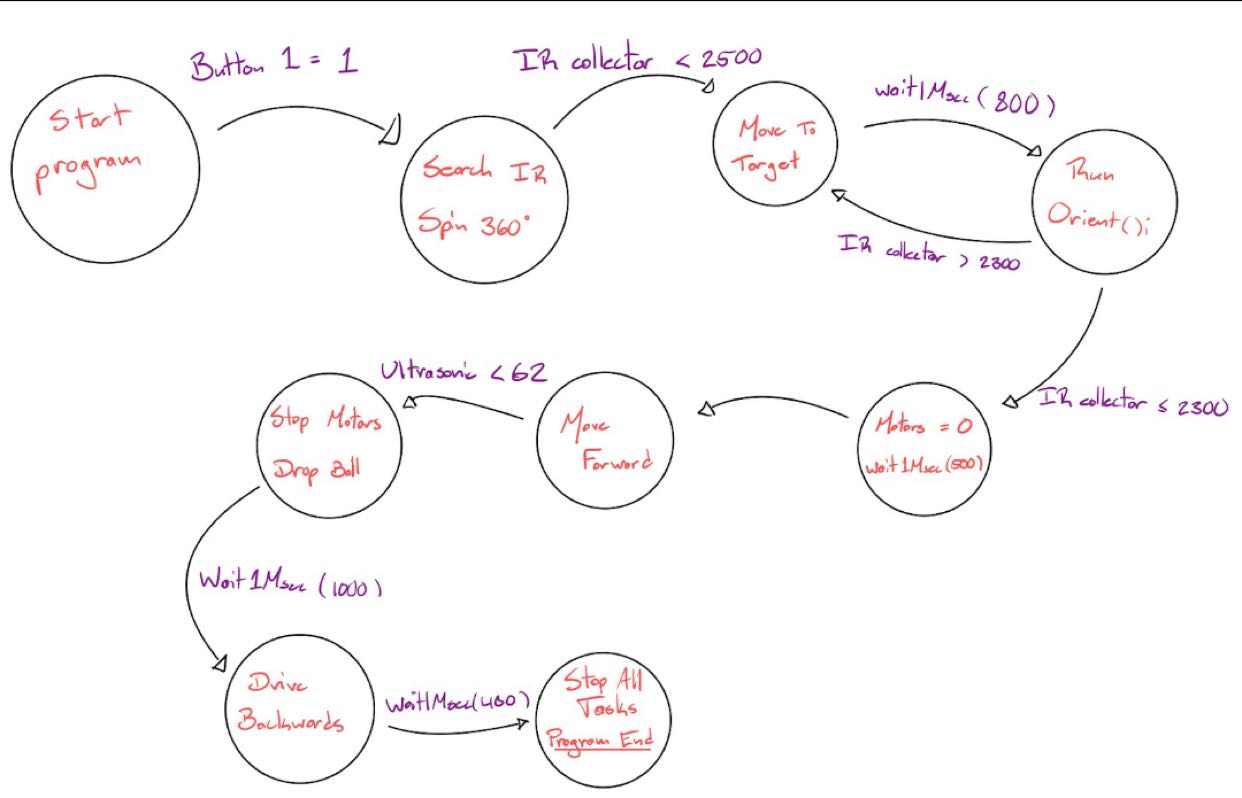 Button 1 = 1
Start
program
IR collector < 2500
Search IR
Spin 360°
Move To
Target
wait1Msec (800)
Run
Orient();
IR collector > 2300
IR collector ≤ 2300
Motors = 0
wait1Msec (500)
Move
Forward
Ultrasonic < 62
Stop Motors
Drop Ball
Wait1Msec (1000)
Drive
Backwards
wait1Msec(400)
Stop All
Tasks
Program End